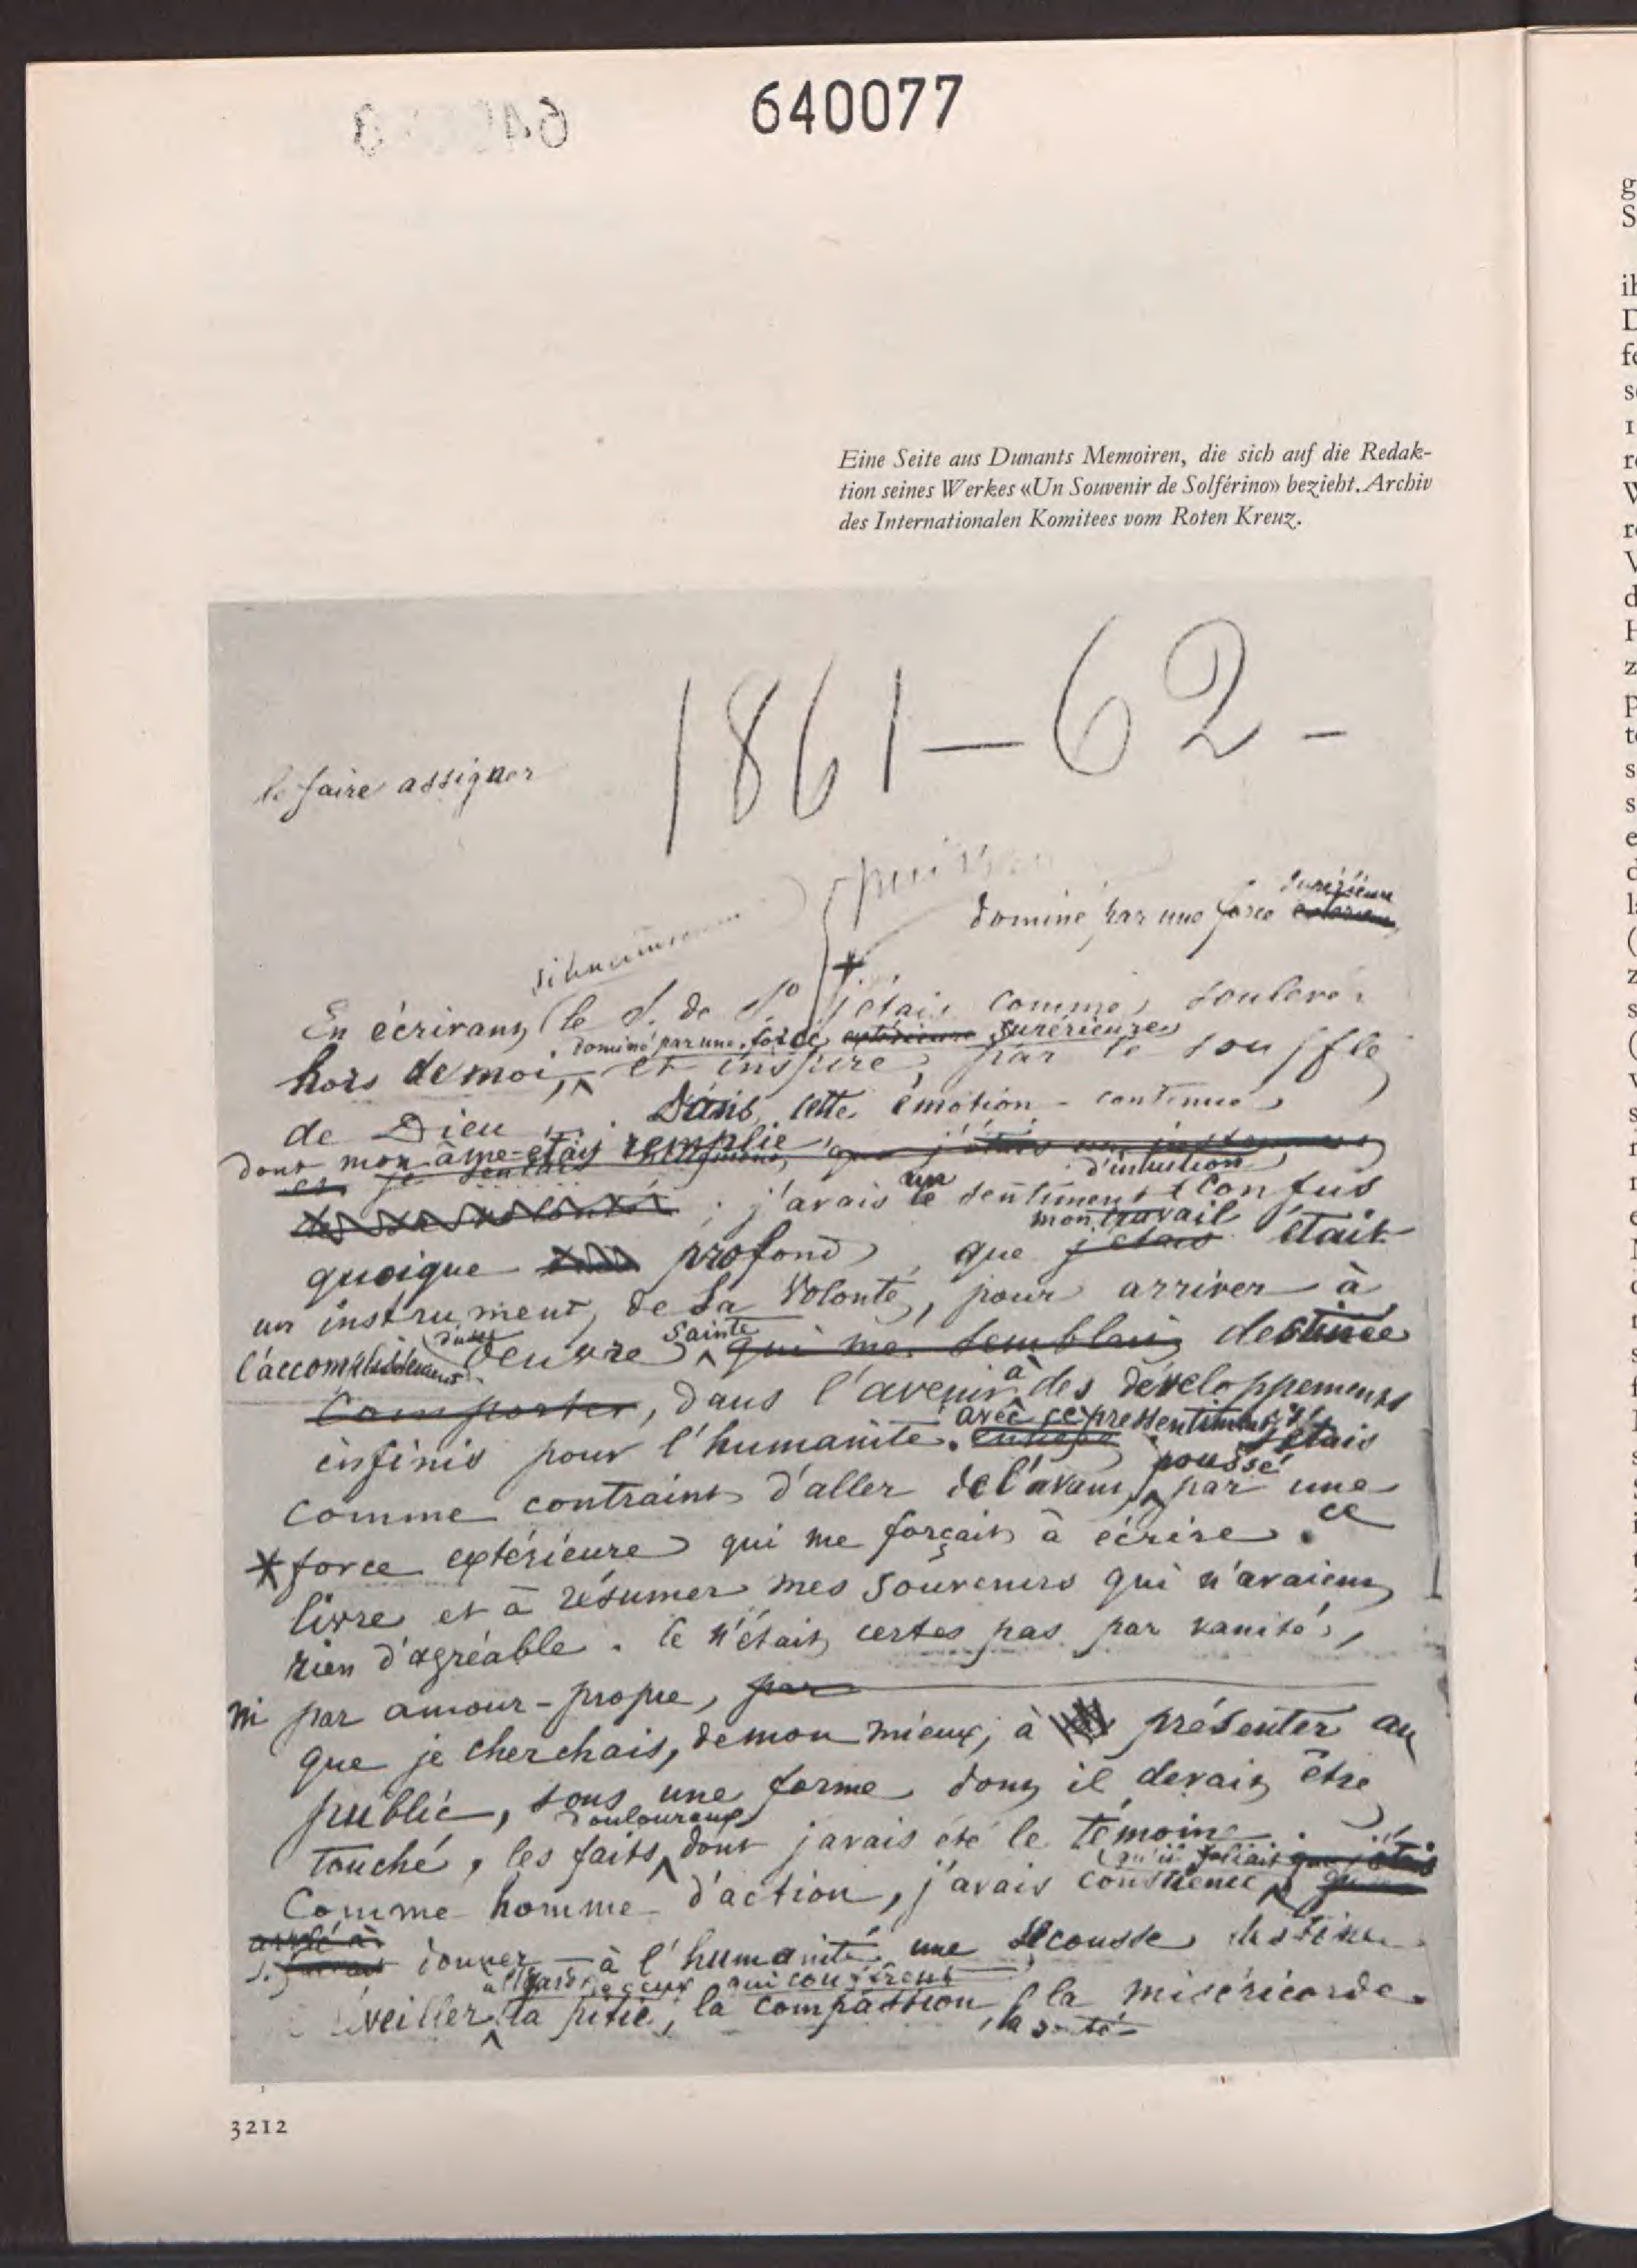 640077
Eine Seite aus Dunants Memoiren, die sich auf die Redak-
tion seines Werkes «Un Souvenir de Solférino» bezieht. Archiv
des Internationalen Komitees vom Roten Kreuz.
1861-62-
le faire assigner
dominé par une force supérieure
En écrivant le S. de S° j'étais comme soulevé
dominé par une force extérieure supérieure
hors de moi, et inspiré par le souffle
de Dieu ... Dans cette émotion contenue
dont mon âme était remplie que j'étais un instrument
et je sentais
un d'intuition
j'avais le sentiment confus
mon travail
quoique profond, que j'étais était
un instrument de Sa Volonté, pour arriver à
l'accomplissement d'une oeuvre sainte qui me semblait destinée
comporter, dans l'avenir à des développements
infinis pour l'humanité. avec ce pressentiment j'étais
comme contraint d'aller de l'avant, poussé par une
*force extérieure qui me forçait à écrire ce
livre et à résumer mes souvenirs qui n'avaient
rien d'agréable. Ce n'était certes pas par vanité,
ni par amour-propre, par
que je cherchais, de mon mieux, à présenter au
public, sous une forme dont il devait être
douloureux
touché, les faits dont j'avais été le témoin.
qu'il fallait que j'étais
Comme homme d'action, j'avais conscience
donner à l'humanité une secousse
à l'égard de ceux qui
éveiller la pitié, la compassion, la miséricorde.
3212